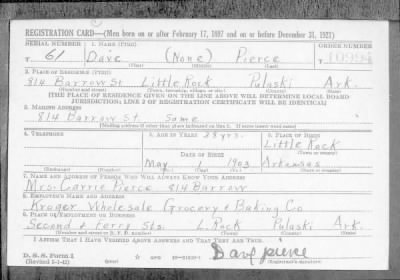 REGISTRATION CARD—(Men born on or after February 17, 1897 and on or before December 31, 1921)
SERIAL NUMBER 1. NAME (Print) ORDER NUMBER
T 61 Dave (None) Pierce
(First) (Middle) (Last)
2. PLACE OF RESIDENCE (Print)
814 Barrow St Little Rock Pulaski Ark.
(Number and street) (Town, township, village, or city) (County) (State)
[THE PLACE OF RESIDENCE GIVEN ON THE LINE ABOVE WILL DETERMINE LOCAL BOARD
JURISDICTION; LINE 2 OF REGISTRATION CERTIFICATE WILL BE IDENTICAL]
3. MAILING ADDRESS
814 Barrow St Same
[Mailing address if other than place indicated on line 2. If same insert word same]
4. TELEPHONE 5. AGE IN YEARS 38 yrs. 6. PLACE OF BIRTH
DATE OF BIRTH Little Rock
May 1 1903 Arkansas
7. NAME AND ADDRESS OF PERSON WHO WILL ALWAYS KNOW YOUR ADDRESS
Mrs. Carrie Pierce 814 Barrow
8. EMPLOYER'S NAME AND ADDRESS
Kroger Wholesale Grocery & Baking Co
9. PLACE OF EMPLOYMENT OR BUSINESS
Second & Ferry Sts. L. Rock Pulaski Ark.
(Number and street or R. F. D. number) (Town) (County) (State)
I AFFIRM THAT I HAVE VERIFIED ABOVE ANSWERS AND THAT THEY ARE TRUE.
D. S. S. Form 1
Dave pierce